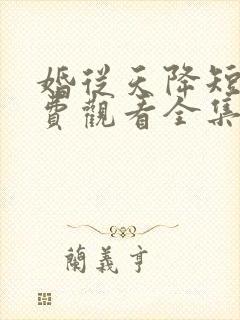 婚從天降短
費觀看全集
蘭義亨